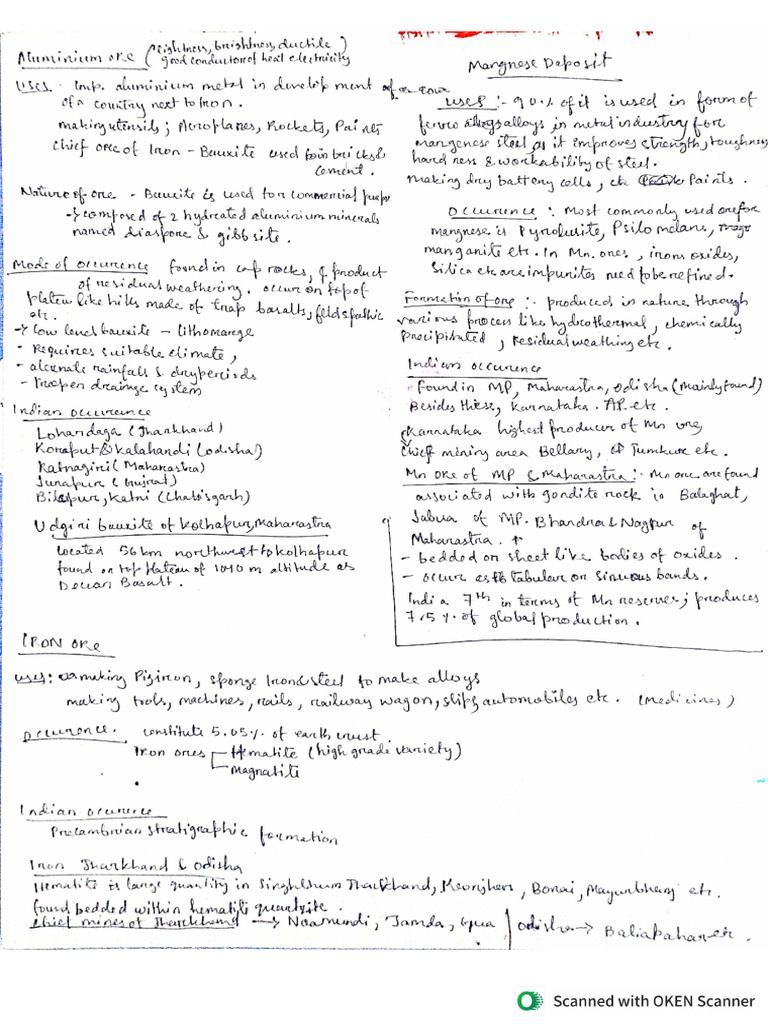 Aluminium ore (Lightness, brightness, ductile)
good conductor of heat electricity
Uses - Imp. aluminium metal in development of
of a country next to Iron.
making utensils; Aeroplanes, Rockets, Paints
Chief ore of Iron - Bauxite used for bricks &
cement.
Nature of ore - Bauxite is used for commercial purps
-> composed of 2 hydrated aluminium minerals
named diaspore & gibbsite.
Mode of occurence found in cap rocks, of product
of residual weathering. occur on top of
plateu like hills made of trap basalts, feldspathic
etc.
-> Low level bauxite - lithomarge
- Requires suitable climate,
- alternate rainfalls & dry periods
- Proper drainge system
Indian occurrence
Lohardaga (Jharkhand)
Koraput & Kalahandi (odisha)
Ratnagiri (Maharastra)
Junapur (Gujrat)
Bilaspur, Katni (Chattisgarh)
Udgiri bauxite of Kolhapur, Maharastra
Located 56km northwest to kolhapur
found on top plateau of 1040 m altitude as
Deccan Basalt.
Mangnese Deposit
Uses :- 90% of it is used in form of
ferro alloys in metal industry for
mangenese steel as it improves strength, toughness
hardness & workability of steel.
making dry battery cells, etc Paints.
Occurence : Most commonly used ore for
mangnese is Pyrolusite, Psilomelane,
manganite etc. In Mn. ores, iron oxides,
silica etc are impurites need to be refined.
Formation of ore :- produced in nature through
various process like hydrothermal, chemically
precipitated, residual weathing etc.
Indian occurence
- found in MP, Maharastra, Odisha (mainly found)
Besides these, Karnataka. AP. etc.
Karnataka highest producer of Mn ore,
chief mining area Bellary, Tumkure etc.
Mn ore of MP & Maharastra :- Mn ore are found
associated with gondite rock in Balaghat,
Jabua of MP. Bhandra & Nagpur of
Maharastra.
- bedded or sheet like bodies of oxides.
- occur as tabular or sinuous bands.
India 7th in terms of Mn reserves; produces
7.5% of global production.
IRON ORE
uses: making Pigiron, sponge Iron & steel to make alloys
making tools, machines, rails, railway wagon, ships, automobiles etc. (Medicines)
Occurence. constitute 5.05% of earth crust
Iron ores - Hematite (high grade variety)
- Magnatite
Indian ocurence
Precambrian stratigraphic formation
Iron Jharkhand & Odisha
Hematite is large quantity in Singhbhum Jharkhand, Keonjhar, Bonai, Mayurbhanj etc.
found bedded within hematite quartzite.
Chief mines of Jharkhand -> Noamundi, Jamda, Gua / Odisha -> Baliapahar etc.
Scanned with OKEN Scanner